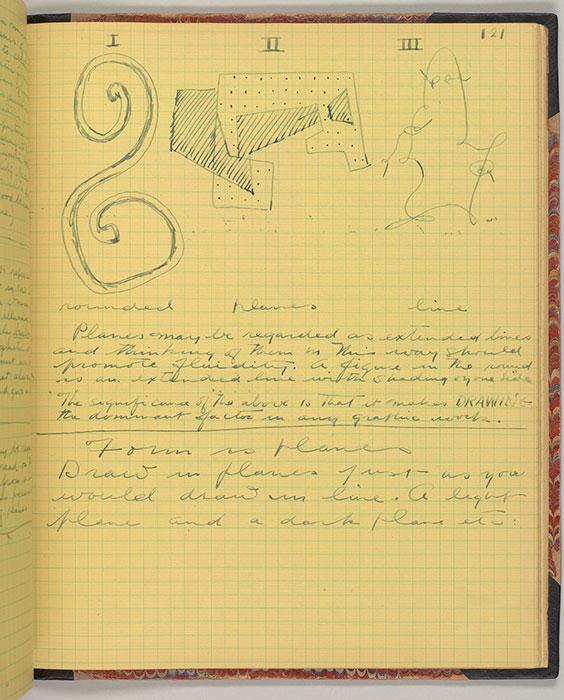 121
I II III
rounded planes line
Planes may be regarded as extended lines
and thinking of them in this way should
promote fluidity. A figure in the round
is an extended line with shading on one side
The significance of the above is that it makes DRAWING
the dominant factor in any graphic work.
Form is planes
Draw in planes just as you
would draw in line. A light
plane and a dark plane etc: